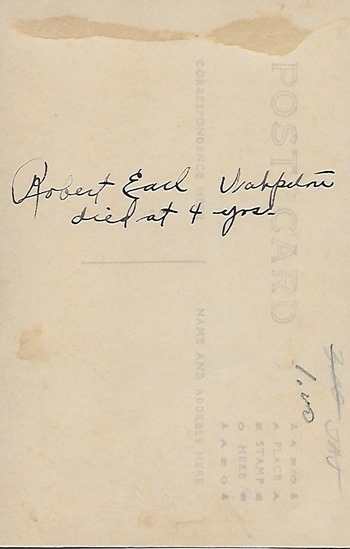 Robert Earl Wahpeton
died at 4 yrs.
POST CARD
CORRESPONDENCE HERE
NAME AND ADDRESS HERE
PLACE
STAMP
HERE
1.00